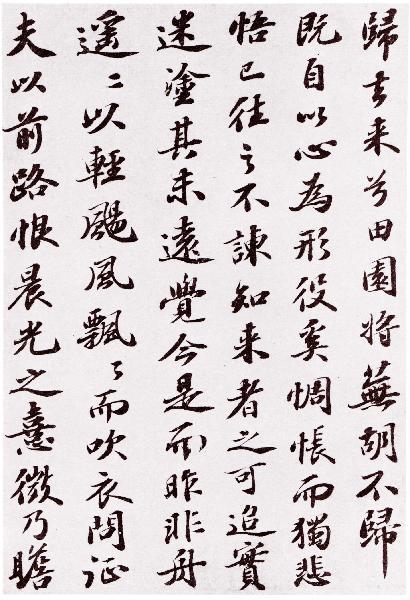 歸去来兮田園將蕪胡不歸
既自以心為形役奚惆悵而獨悲
悟已往之不諫知来者之可追實
迷塗其未遠覺今是而昨非舟
遥〻以輕颺風飄〻而吹衣問征
夫以前路恨晨光之熹微乃瞻